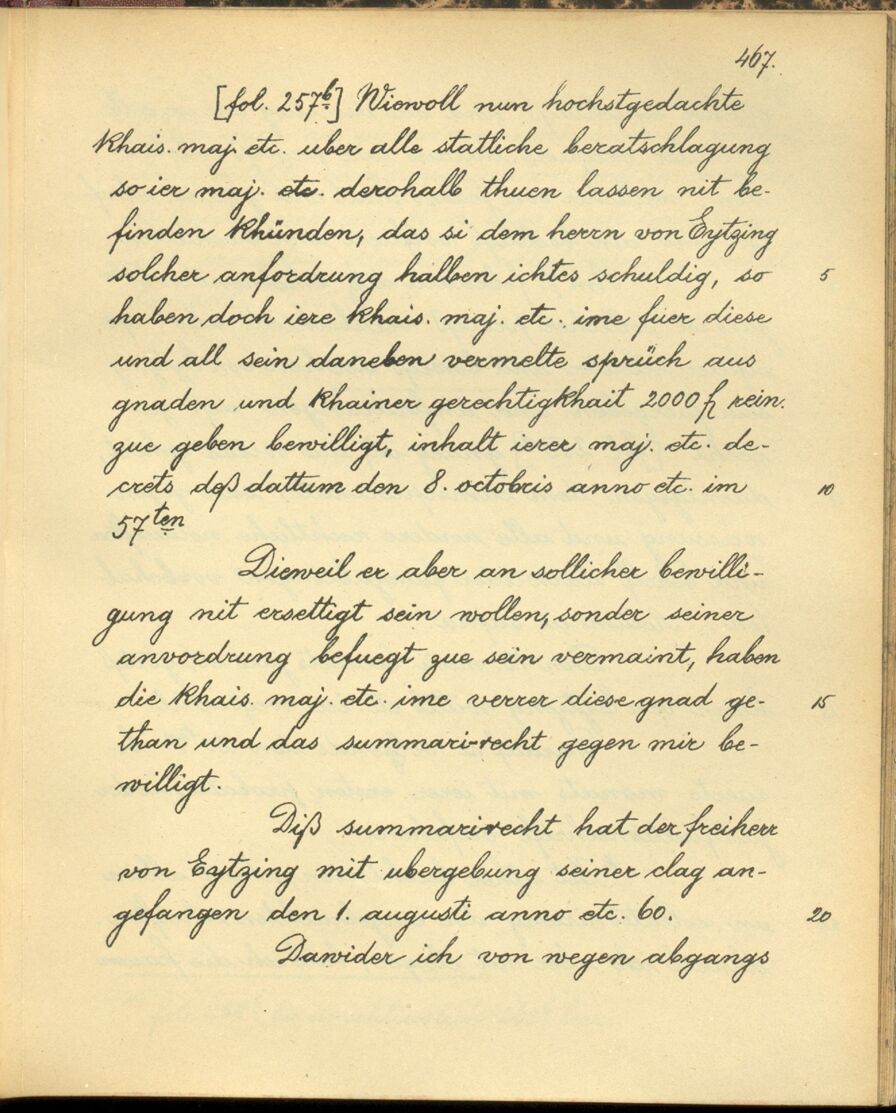 467.
[fol. 257b] Wiewoll nun hochstgedachte
khais. maj. etc. uber alle statliche beratschlagung
so ier maj. etc. derohalb thuen lassen nit be-
finden khünden, das si dem herrn von Eytzing
solcher anfordrung halben ichtes schuldig, so 5
haben doch iere khais. maj. etc. ime fuer diese
und all sein daneben vermelte sprüch aus
gnaden und khainer gerechtigkhait 2000 fl rein.
zue geben bewilligt, inhalt ierer maj. etc. de-
crets deß dattum den 8. octobris anno etc. im 10
57ten
Dieweil er aber an sollicher bewilli-
gung nit ersettigt sein wollen, sonder seiner
anvordrung befuegt zue sein vermaint, haben
die khais. maj. etc. ime verrer diese gnad ge- 15
than und das summari-recht gegen mir be-
willigt.
Diß summarirecht hat der freiherr
von Eytzing mit ubergebung seiner clag an-
gefangen den 1. augusti anno etc. 60. 20
Dawider ich von wegen abgangs